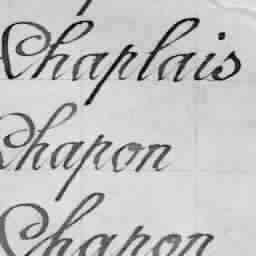 Chaplais
Chapon
Chapon